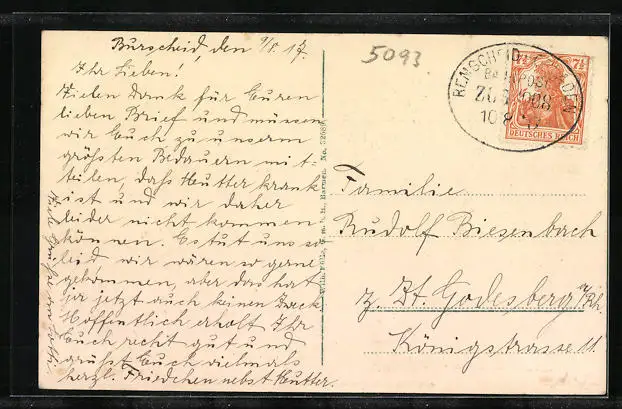 Burscheid, den 9/8. 17.
Ihr Lieben!
Vielen Dank für Euren
lieben Brief und müssen
wir Euch zu unserm
größten Bedauern mit-
teilen, dass Mutter krank
ist und wir daher
leider nicht kommen
können. Es tut uns so
leid wir wären so gerne
gekommen, aber das hat
ja jetzt auch keinen Zweck
Hoffentlich erholt Ihr
Euch recht gut und
grüßt Euch vielmals
herzl. Friedchen nebst Mutter.
5093
REMSCHEID
BAHNPOST
ZUG
10 8
7½ 7½
DEUTSCHES REICH
Familie
Rudolf Biesenbach
z. Zt. Godesberg a/Rh.
Königstrasse 11